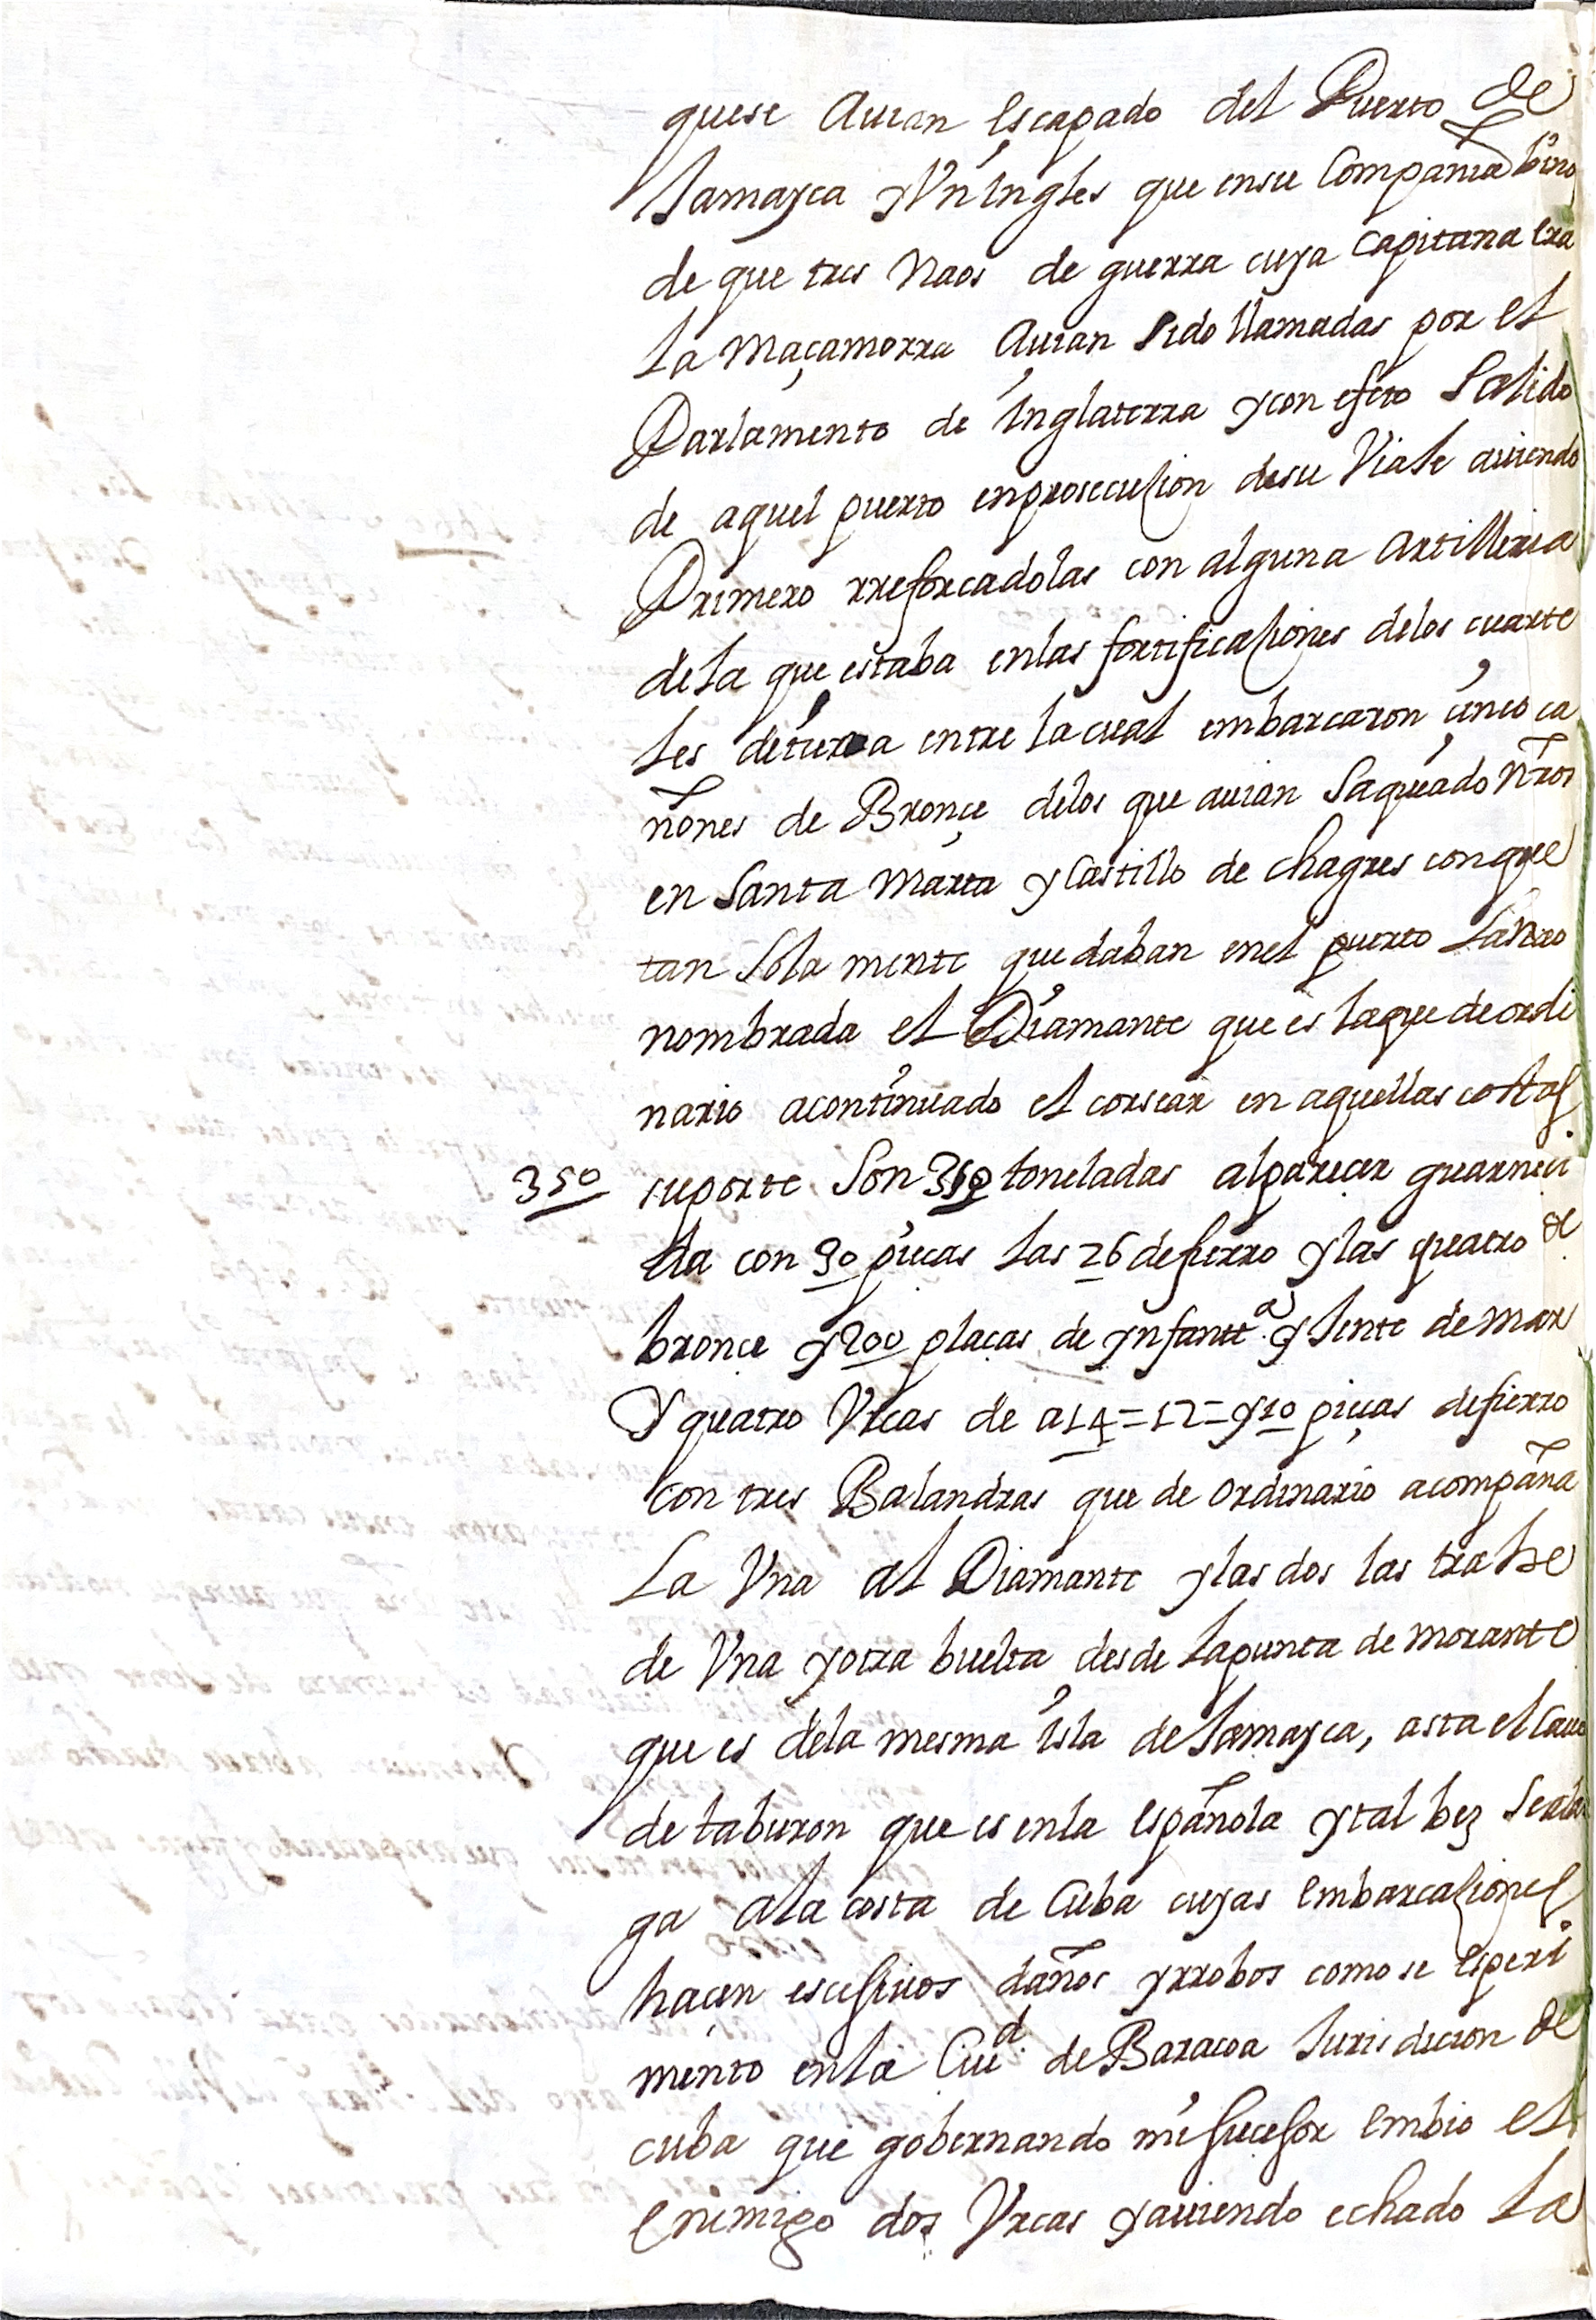 quese Auian escapado del Puerto de
Jamayca y Vn ingles que ensu Compañia bino
de que tres Naos de guerra cuya Capitana era
la Maçamorra Auian sido llamadas por el
Parlamento de inglaterra y con efeto Salido
de aquel puerto enprosecusion desu Viaje auiendo
Primero rreforcadolas con alguna Artilleria
dela que estaba enlas fortificasiones delos cuarte
les detierra entre la cual embarcaron çinco ca
ñones de Bronçe delos que auian Saqueado nros
en Santa Marta y Castillo de chagres con que
tan Sola mente quedaban enel puerto
nombrada el Diamante que es laque de ordi
nario acontinuado el corsear en aquellas costas
350 suporte Son 350 toneladas alparecer guarneci
da con 30 pieças las 26 defierro y las quatro de
bronçe y 200 plaças de ynfantᵃ. y Jente de mar
Y quatro Vrcas de a 14 = 12 = y 10 pieças defierro
con tres Balandras que de ordinario acompaña
La Vna al Diamante y las dos las trahe
de Vna yotra buelta desde lapunta de morante
que es dela mesma isla de Jamayca, asta el Caue
de taburon que es enla española y tal bez Sealar
ga ala costa de Cuba cuyas embarcasiones
haçen escesiuos daños yrrobos como se esperi
mento enla Ciud. de Baracoa Jurisdicion de
cuba que gobernando mi sucesor embio el
enemigo dos Vrcas yauiendo echado la